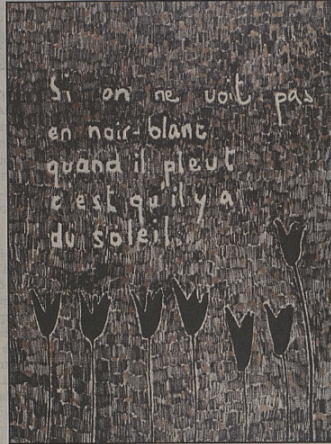 Si on ne voit pas
en noir-blanc
quand il pleut
c'est qu'il y a
du soleil.